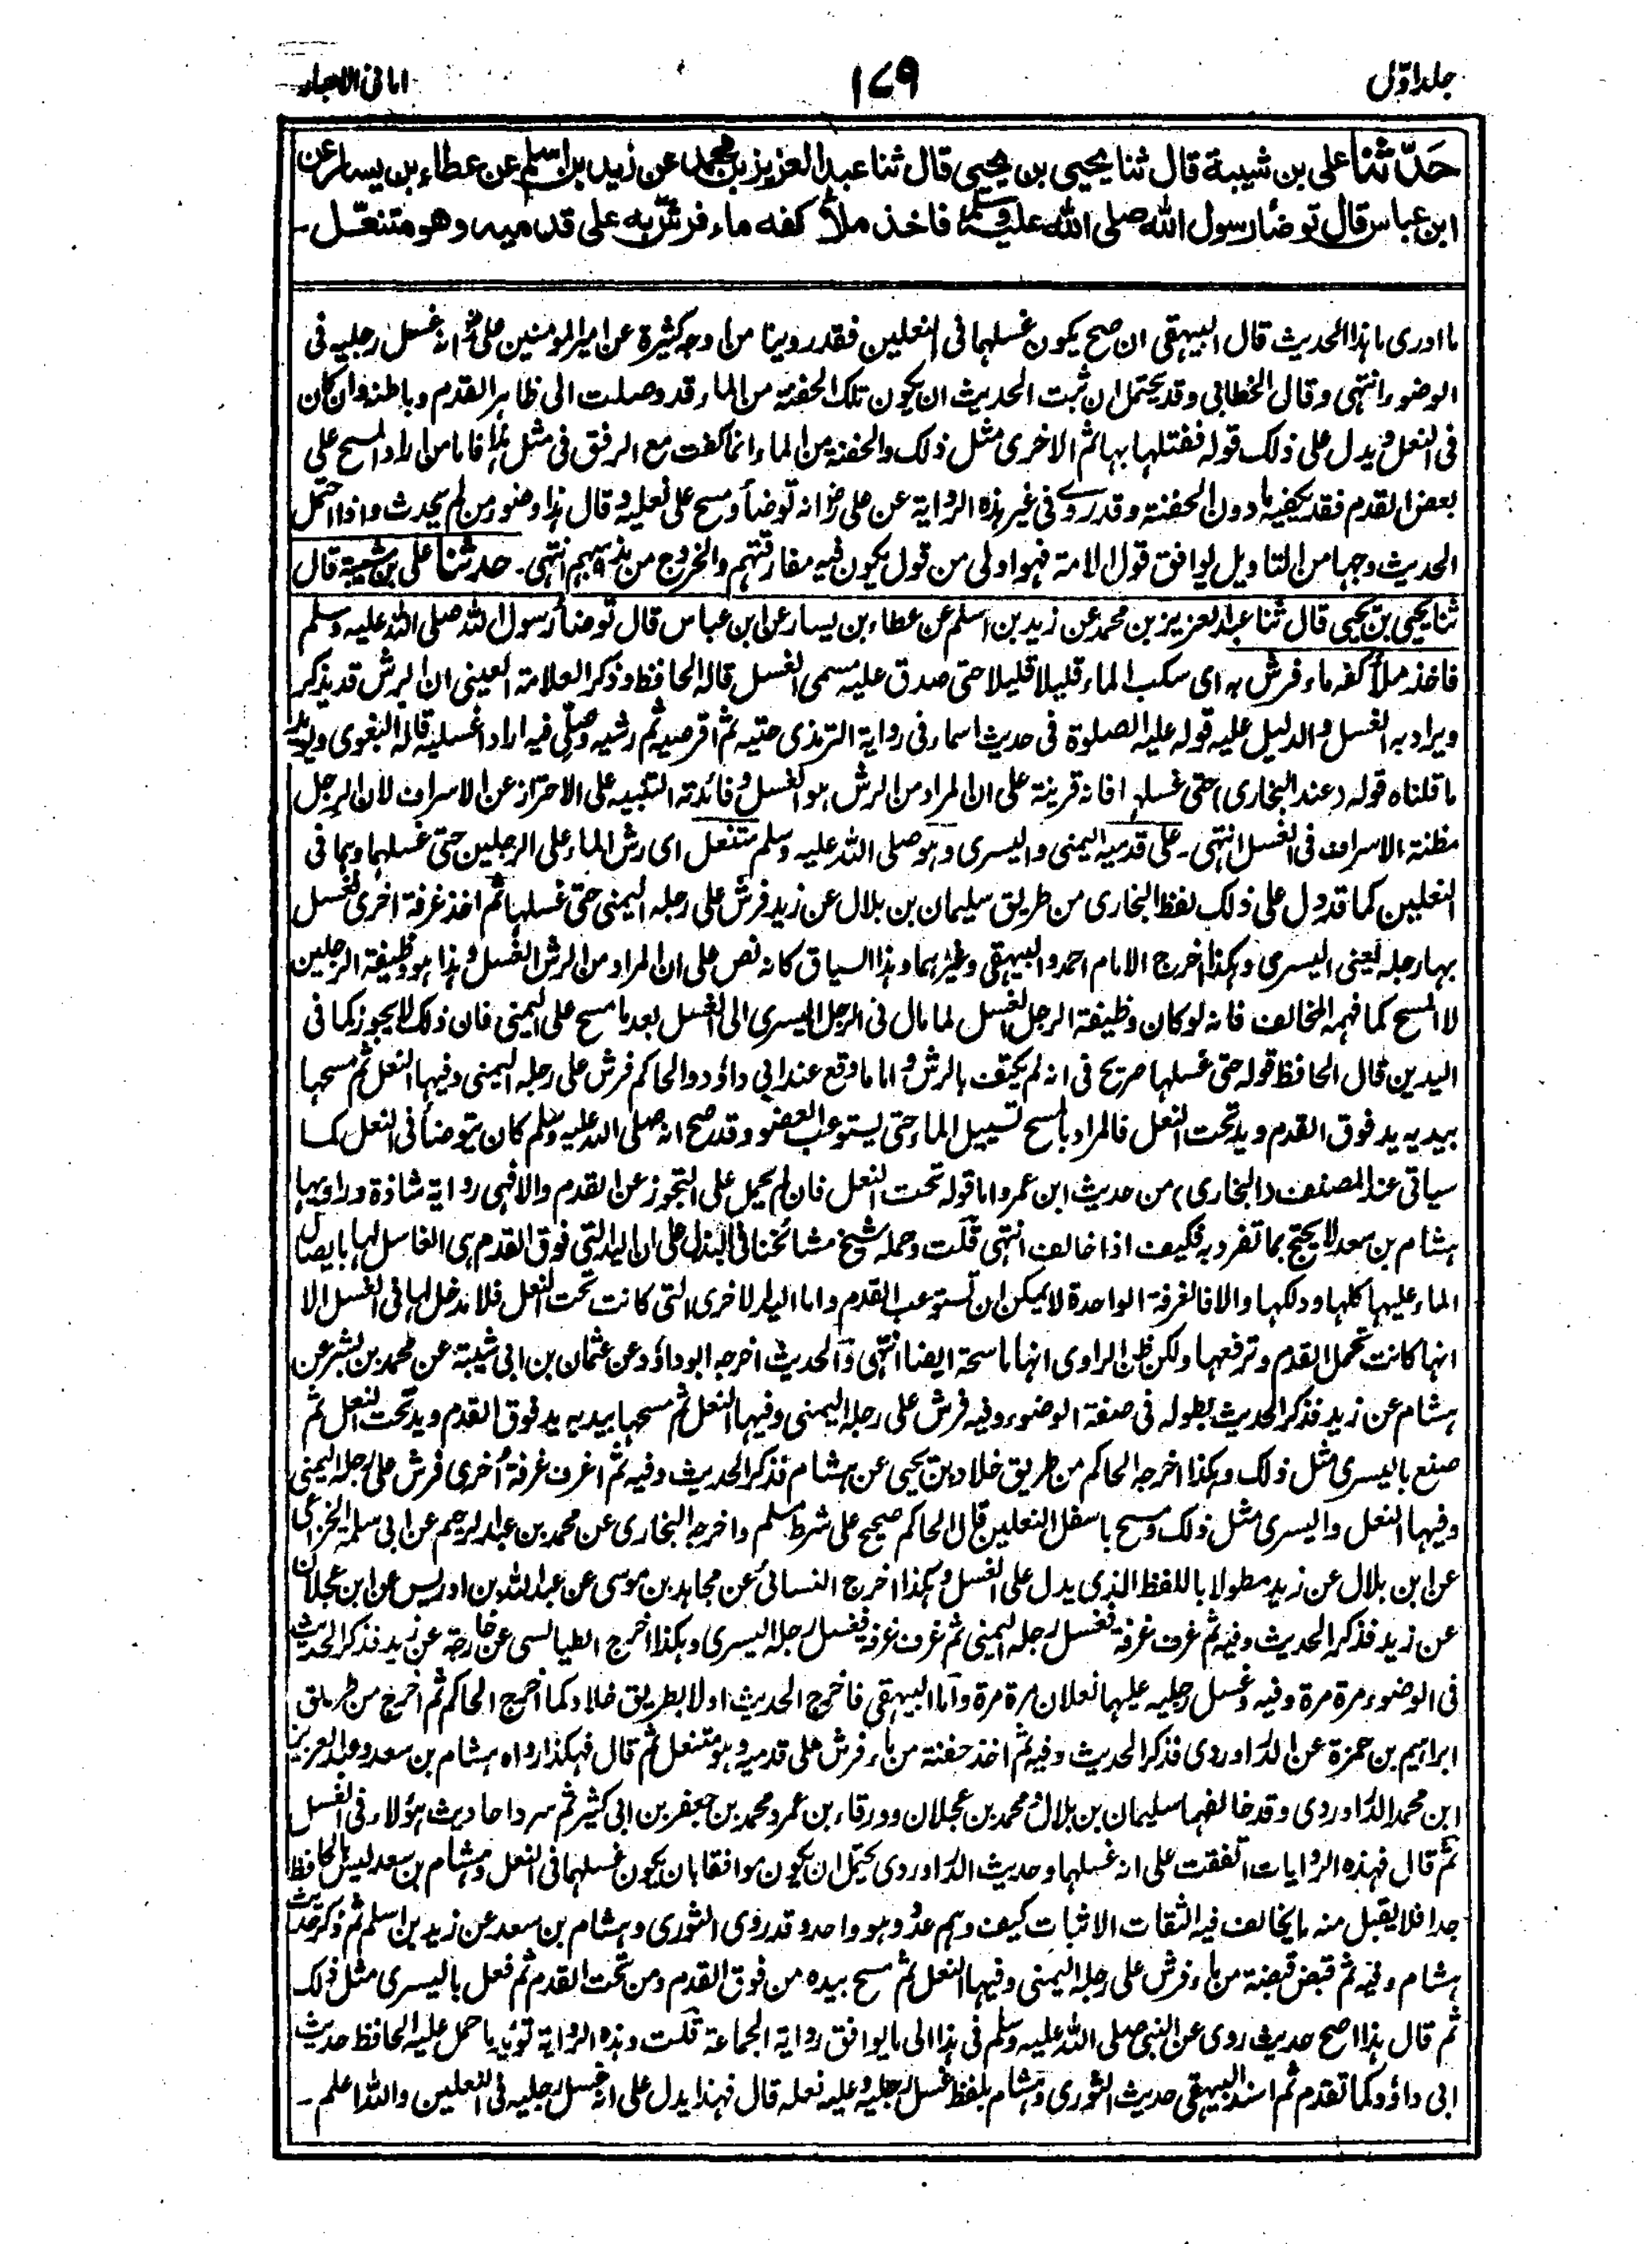 جلد اوّل ١٧٩ امانی الاحبار
حَدّثنا علی بن شیبة قال ثنا یحیی بن یحیی قال ثنا عبد العزیز بن محمد عن زید بن اسلم عن عطاء بن یسار عن
ابن عباس قال توضأ رسول الله صلی الله علیه وسلم فاخذ ملأ کفه ماء فرش به علی قدمیه وهو متنعّل۔
ما ادری ما هذا الحدیث قال البیهقی ان صح یکون غسلهما فی النعلین فقد روینا من اوجه کثیرة عن امیر المومنین علیؓ انه غسل رجلیه فی
الوضوء انتهی وقال الخطابی وقد یحتمل ان ثبت الحدیث ان یکون تلک الحفنة من الماء قد وصلت الی ظاهر القدم وباطنه وان کان
فی النعل ویدل علی ذلک قوله ففتلها بها ثم الاخری مثل ذلک والحفنة من الماء انما کفت مع الرفق فی مثل هذا فاما من اراد المسح علی
بعض القدم فقد یکفیه ما دون الحفنة وقد روی فی غیر هذه الروایة عن علی رضؓ انه توضأ ومسح علی نعلیه وقال هذا وضوء من لم یحدث واذا احتمل
الحدیث وجها من التاویل یوافق قول الامة فهو اولی من قول یکون فیه مفارقتهم والخروج من مذاهبهم انتهی۔ حدثنا علی بن شیبة قال
ثنا یحیی بن یحیی قال ثنا عبد العزیز بن محمد عن زید بن اسلم عن عطاء بن یسار عن ابن عباس قال توضأ رسول الله صلی الله علیه وسلم
فاخذ ملأ کفه ماء فرش به ای سکب الماء قلیلا قلیلا حتی صدق علیه مسمی الغسل قاله الحافظ وذکر العلامة العینی ان الرش قد یذکر
ویراد به الغسل والدلیل علیه قوله علیه الصلوة فی حدیث اسماء فی روایة الترمذی حتیه ثم اقرصیه ثم رشیه وصلی فیه اراد اغسلیه قاله البغوی ویؤید
ما قلناه قوله (عند البخاری) حتی غسلها فانه قرینة علی ان المراد من الرش هو الغسل وفائدته التنبیه علی الاحتراز عن الاسراف لان الرجل
مظنة الاسراف فی الغسل انتهی۔ علی قدمیه الیمنی والیسری وهو صلی الله علیه وسلم متنعل ای رش الماء علی الرجلین حتی غسلهما وهما فی
النعلین کما قد دل علی ذلک لفظ البخاری من طریق سلیمان بن بلال عن زید فرش علی رجله الیمنی حتی غسلها ثم اخذ غرفة اخری فغسل
بها رجله یعنی الیسری وهکذا اخرج الامام احمد والبیهقی وغیرهما وهذا السیاق کانه نص علی ان المراد من الرش الغسل وهذا هو وظیفة الرجلین
لا المسح کما فهمه المخالف فانه لو کان وظیفة الرجل الغسل لما مال فی الرجل الیسری الی الغسل بعد ما مسح علی الیمنی فان ذلک لا یجوز کما فی
الیدین قال الحافظ قوله حتی غسلها صریح فی انه لم یکتف بالرش واما ما وقع عند ابی داؤد والحاکم فرش علی رجله الیمنی وفیها النعل ثم مسحها
بیدیه ید فوق القدم وید تحت النعل فالمراد بالمسح تسییل الماء حتی یستوعب العضو وقد صح انه صلی الله علیه وسلم کان یتوضأ فی النعل کما
سیاتی عند المصنف (البخاری) من حدیث ابن عمر واما قوله تحت النعل فان لم یحمل علی التجوز عن القدم والا فهی روایة شاذة وراویها
هشام بن سعد لا یحتج بما تفرد به فکیف اذا خالف انتهی قلت وحمله شیخ مشائخنا فی البذل علی ان الید التی فوق القدم هی الغاسل لها بایصال
الماء علیها کلها ودلکها والا فالغرفة الواحدة لا یمکن ان تستوعب القدم واما الید الاخری التی کانت تحت النعل فلا مدخل لها فی الغسل الا
انها کانت تحمل القدم وترفعها ولکن ظن الراوی انها ماسحة ایضا انتهی والحدیث اخرجه ابوداؤد عن عثمان بن ابی شیبة عن محمد بن بشر عن
هشام عن زید فذکر الحدیث بطوله فی صفة الوضوء وفیه فرش علی رجله الیمنی وفیها النعل ثم مسحها بیدیه ید فوق القدم وید تحت النعل ثم
صنع بالیسری مثل ذلک وهکذا اخرجه الحاکم من طریق خلاد بن یحیی عن هشام فذکر الحدیث وفیه ثم اغرف غرفة اُخری فرش علی رجله الیمنی
وفیها النعل والیسری مثل ذلک ومسح باسفل النعلین قال الحاکم صحیح علی شرط مسلم واخرجه البخاری عن محمد بن عبد الرحیم عن ابی سلمة الخزاعی
عن ابن بلال عن زید مطولا باللفظ الذی یدل علی الغسل وهکذا اخرج النسائی عن مجاهد بن موسی عن عبد الله بن ادریس عن ابن عجلان
عن زید فذکر الحدیث وفیه ثم غرف غرفة فغسل رجله الیمنی ثم غرف غرفة فغسل رجله الیسری وهکذا اخرج الطیالسی عن خارجة عن زید فذکر الحدیث
فی الوضوء مرة مرة وفیه وغسل رجلیه علیهما نعلان مرة مرة واما البیهقی فاخرج الحدیث اولا بطریق خلاد کما اخرج الحاکم ثم اخرج من طریق
ابراهیم بن حمزة عن الدراوردی فذکر الحدیث وفیه ثم اخذ حفنة من ماء فرش علی قدمیه وهو متنعل ثم قال فهکذا رواه هشام بن سعد وعبد العزیز
ابن محمد الدراوردی وقد خالفهما سلیمان بن بلال ومحمد بن عجلان وورقاء بن عمر ومحمد بن جعفر بن ابی کثیر ثم سرد احادیث هؤلاء فی الغسل
ثم قال فهذه الروایات اتفقت علی انه غسلها وحدیث الدراوردی یحتمل ان یکون موافقا بان یکون غسلهما فی النعل وهشام بن سعد لیس بالحافظ
جدا فلا یقبل منه ما یخالف فیه الثقات الاثبات کیف وهم عدد وهو واحد وقد روی الثوری وهشام بن سعد عن زید بن اسلم ثم ذکر حدیث
هشام وفیه ثم قبض قبضة من ماء فرش علی رجله الیمنی وفیها النعل ثم مسح بیده من فوق القدم ومن تحت القدم ثم فعل بالیسری مثل ذلک
ثم قال هذا اصح حدیث روی عن النبی صلی الله علیه وسلم فی هذا الی ما یوافق روایة الجماعة قلت وهذه الروایة تؤید ما حمل علیه الحافظ حدیث
ابی داؤد کما تقدم ثم اسند البیهقی حدیث الثوری وهشام بلفظ غسل رجلیه وعلیه نعله قال فهذا یدل علی انه غسل رجلیه فی النعلین والله اعلم۔